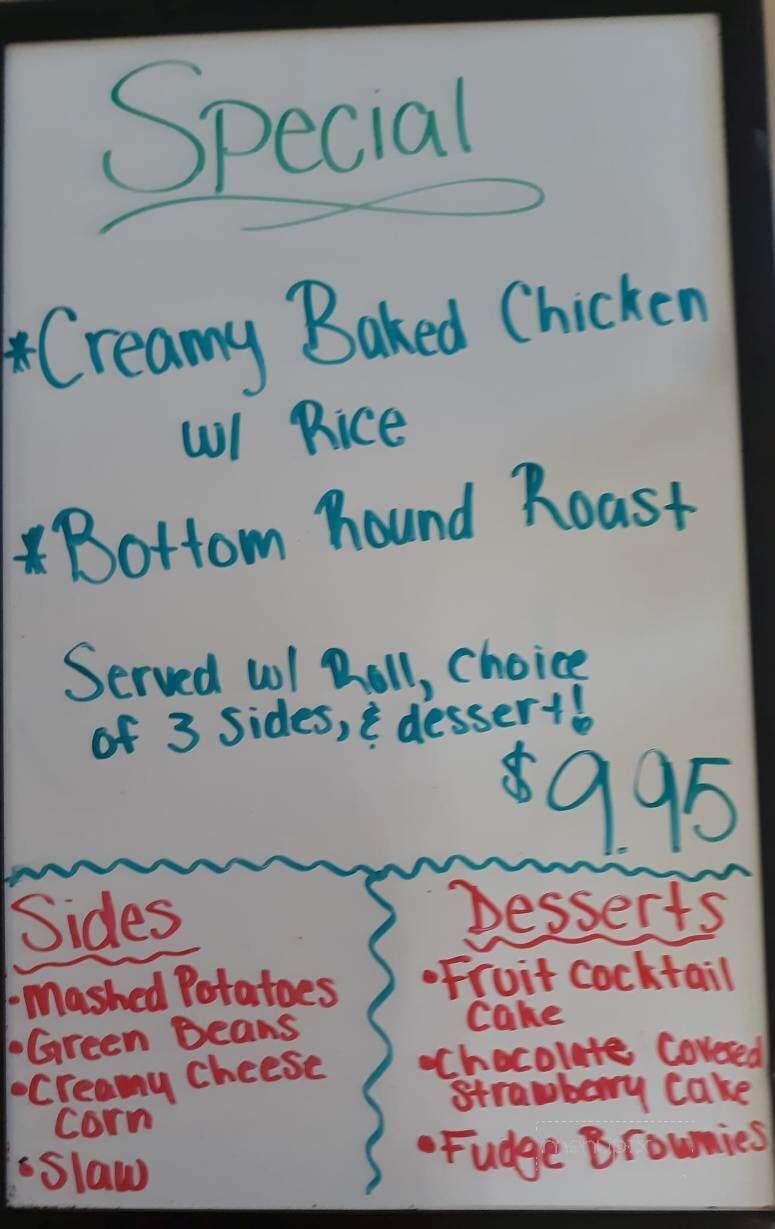 Special
*Creamy Baked Chicken
w/ Rice
*Bottom Round Roast
Served w/ Roll, Choice
of 3 Sides, & dessert!
$9.95
Sides
•Mashed Potatoes
•Green Beans
•Creamy Cheese
Corn
•Slaw
Desserts
•Fruit Cocktail
Cake
•Chocolate Covered
Strawberry Cake
•Fudge Brownies